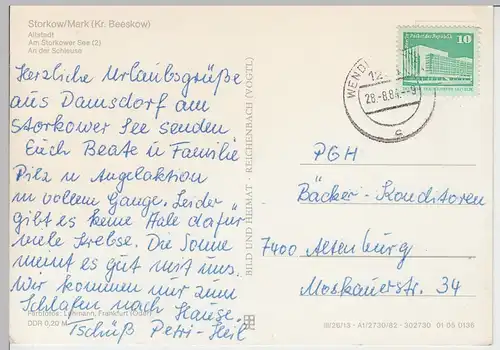 Storkow/Mark (Kr. Beeskow)
Altstadt
Am Storkower See (2)
An der Schleuse
Herzliche Urlaubsgrüße
aus Damsdorf am
Storkower See senden
Euch Beate u Familie
Pilz u Angelaktion
in vollem Gange. Leider
gibt es keine Aale dafür
viele Krebse. Die Sonne
meint es gut mit uns.
Wir kommen nur zum
Schlafen nach Hause.
Tschüß Petri-Heil
Farbfotos: Lehmann, Frankfurt (Oder)
DDR 0,20 M
BILD UND HEIMAT · REICHENBACH (VOGTL)
10
WENDI
28.-8.84.-9
c
PGH
Bäcker-Konditoren
7400 Altenburg
Moskauerstr. 34
III/26/13 · A1/2730/82 · 302730 01 05 0136